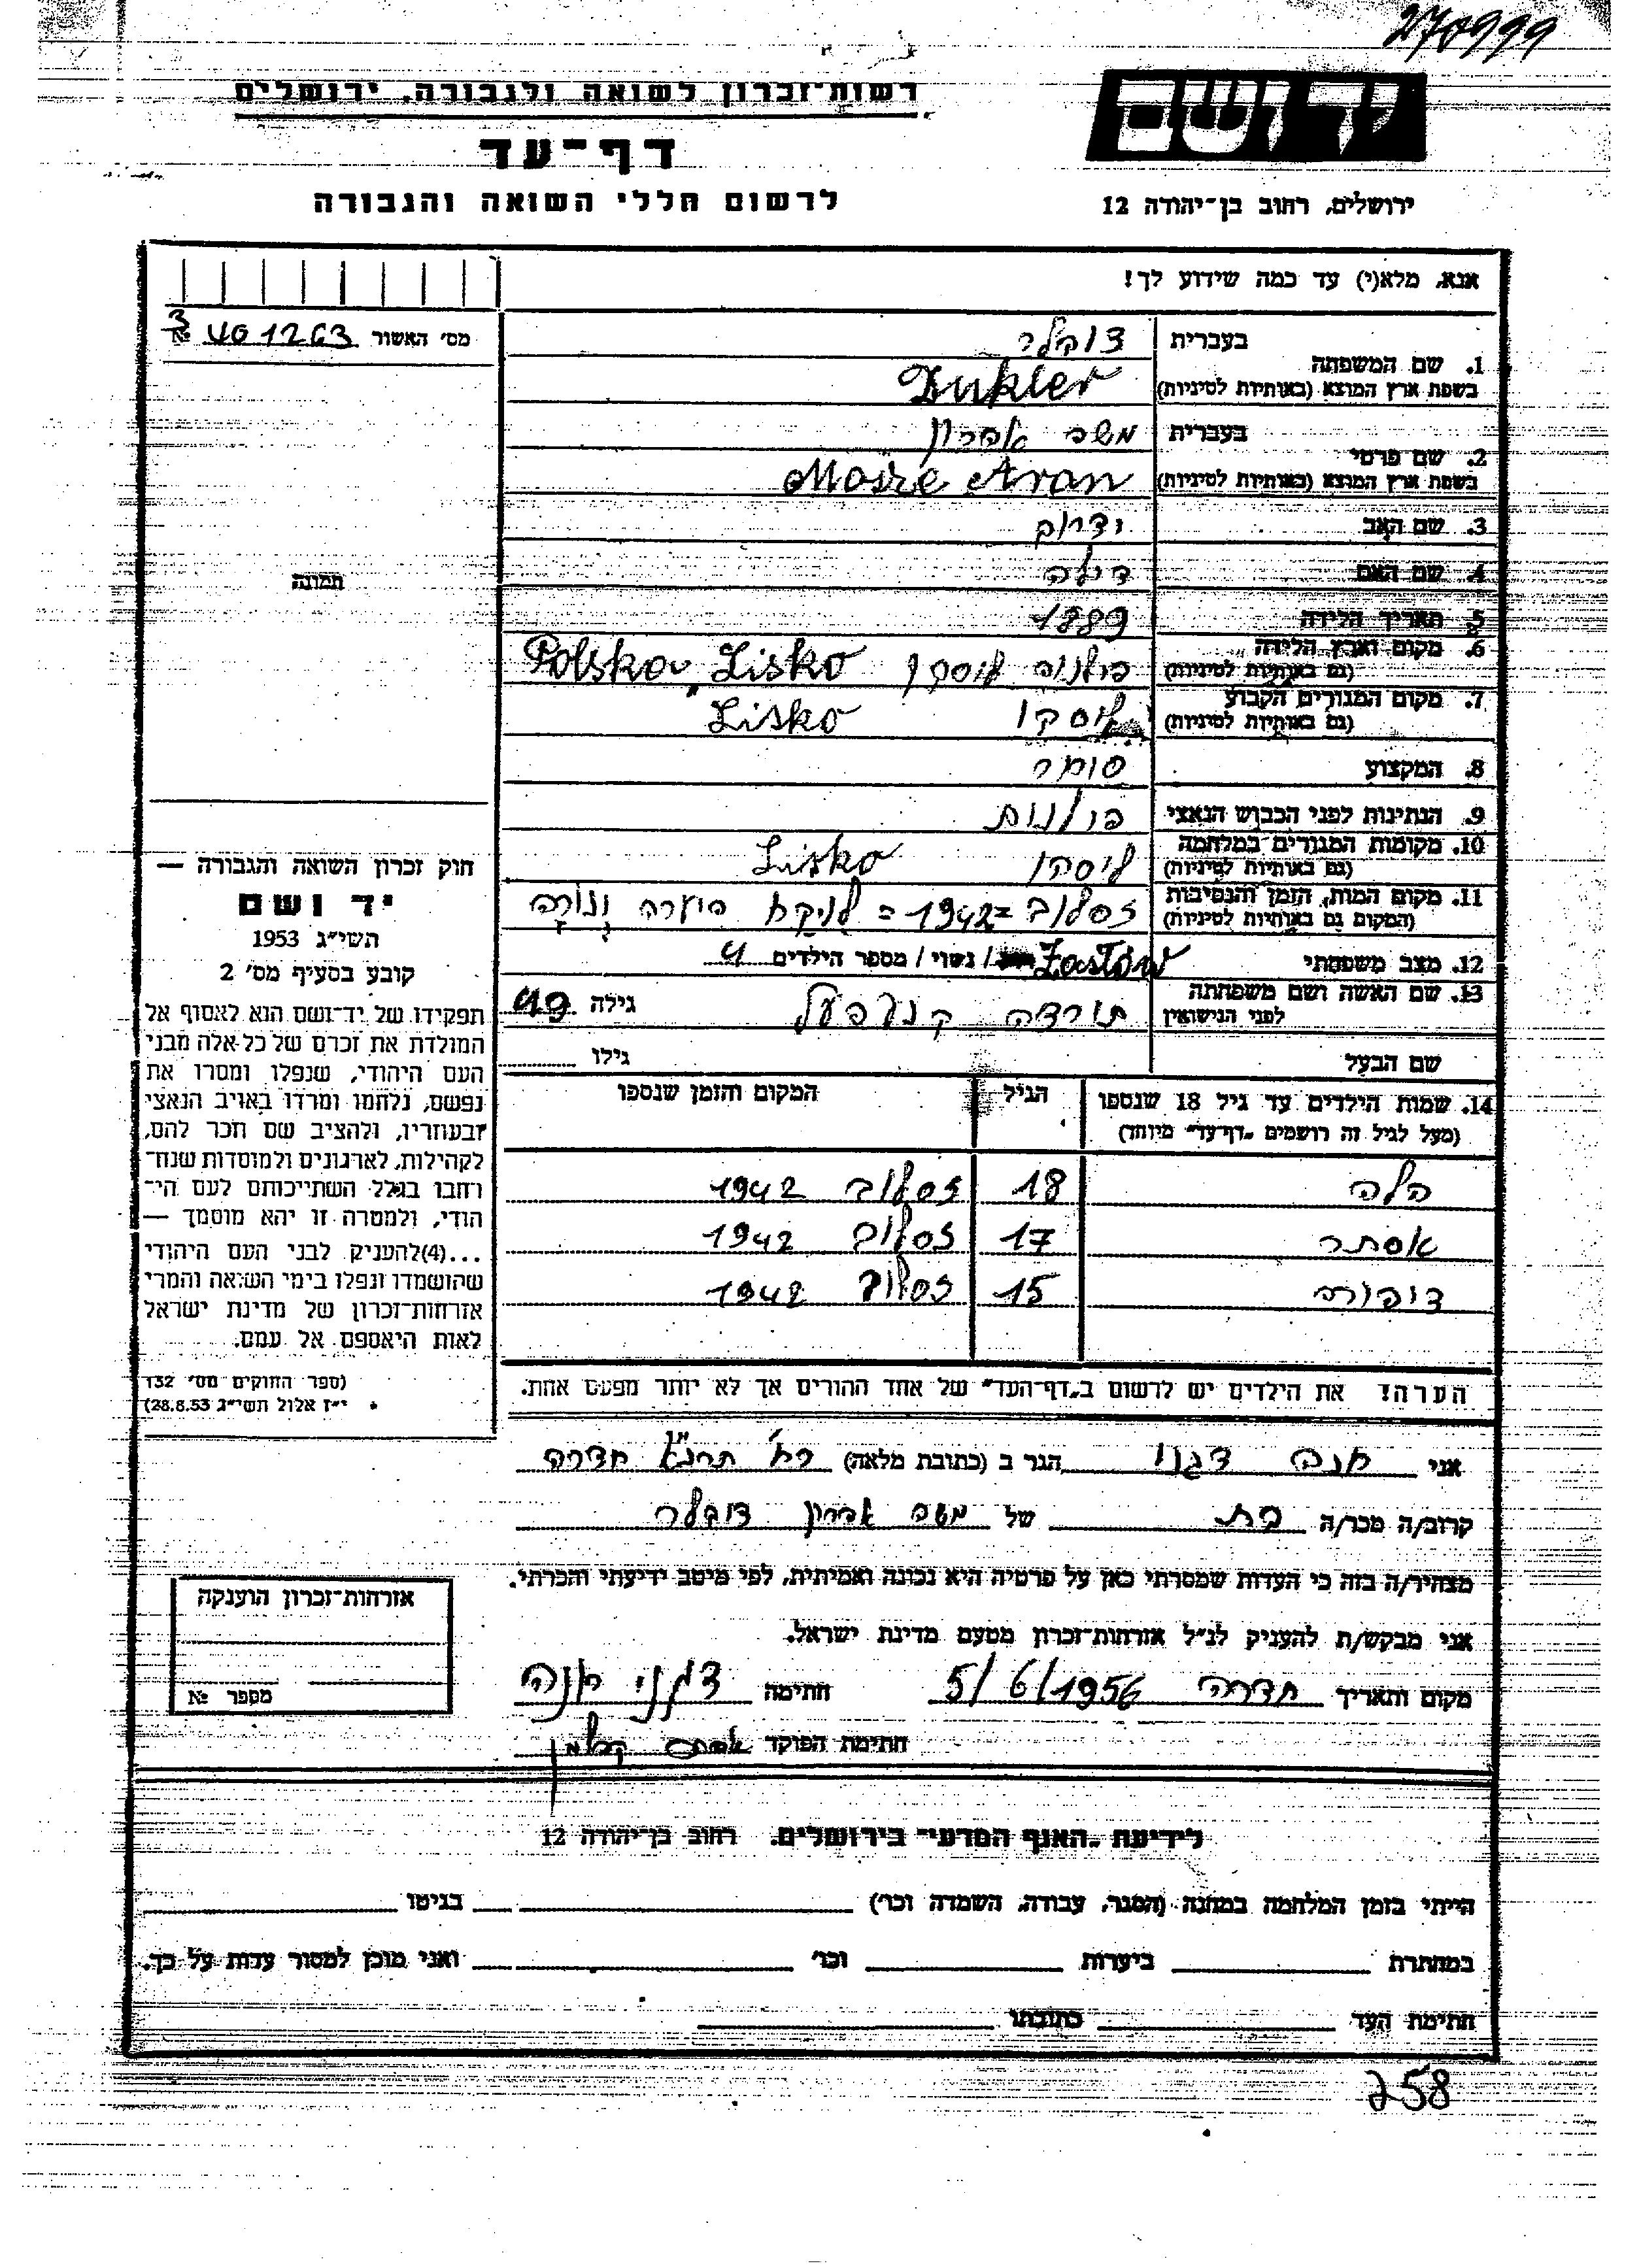 270999
רשות־זכרון לשואה ולגבורה, ירושלים
יד ושם
דף־עד
לרשום חללי השואה והגבורה
ירושלים, רחוב בן־יהודה 12
אנא, מלא(י) עד כמה שידוע לך!
מס' האשור 401263 №
1. שם המשפחה
בעברית
צוקלר
בשפת ארץ המוצא (באותיות לטיניות)
Zukler
2. שם פרטי
בעברית משה אהרון
בשפת ארץ המוצא (באותיות לטיניות) Aran
3. שם האב
4. שם האם
5. תאריך הלידה 1889
6. מקום וארץ הלידה
(גם באותיות לטיניות) Polska, Lisko
7. מקום המגורים הקבוע
(גם באותיות לטיניות) ליסקו Lisko
8. המקצוע סוחר
9. הנתינות לפני הכבוש הנאצי פולנית
10. מקומות המגורים במלחמה
(גם באותיות לטיניות) ליסקו Lisko
11. מקום המות, הזמן והנסיבות
(המקום גם באותיות לטיניות) זסלוב =1942= לוקח היערה ונורה
12. מצב משפחתי Zastów / נשוי / מספר הילדים 4
13. שם האשה ושם משפחתה
לפני הנישואין גילה 49
שם הבעל גילו
תמונה
חוק זכרון השואה והגבורה —
יד ושם
תשי"ג 1953
קובע בסעיף מס' 2
תפקידו של יד־ושם הוא לאסוף אל
המולדת את זכרם של כל־אלה מבני
העם היהודי, שנפלו ומסרו את
נפשם, נלחמו ומרדו באויב הנאצי
ובעוזריו, ולהציב שם וזכר להם,
לקהילות, לארגונים ולמוסדות שנח־
רחבו בגלל השתייכותם לעם הי־
הודי, ולמטרה זו יהא מוסמך —
...(4)להעניק לבני העם היהודי
שהושמדו ונפלו בימי השואה והמרי
אזרחות־זכרון של מדינת ישראל
לאות היאספם אל עמם.
(ספר החוקים מס' 132
י"ז אלול תשי"ג 28.8.53)
14. שמות הילדים עד גיל 18 שנספו הגיל המקום והזמן שנספו
(מעל לגיל זה רושמים "דף־עד" מיוחד)
הלה 18 זסלוב 1942
אסתר 17 זסלוב 1942
דבורה 15 זסלוב 1942
הערה! את הילדים יש לרשום ב"דף־העד" של אחד ההורים אך לא יותר מפעם אחת.
אני חנה דגני הגר ב (כתובת מלאה) רח' תרנ"א חדרה
קרוב/ה מכר/ה בת של משה אהרון צוקלר
מצהיר/ה בזה כי העדות שמסרתי כאן על פרטיה היא נכונה ואמיתית, לפי מיטב ידיעתי והכרתי.
אני מבקש/ת להעניק לנ"ל אזרחות־זכרון מטעם מדינת ישראל.
מקום ותאריך חדרה 5/6/1956 חתימה דגני חנה
חתימת הפוקד
אזרחות־זכרון הוענקה
מספר №
לידיעת "האגף המדעי" בירושלים. רחוב בן־יהודה 12
הייתי בזמן המלחמה במחנה (הסגר, עבודה, השמדה וכו') בגיטו
במחתרת ביערות וכו' ואני מוכן למסור עדות על כך.
חתימת העד כתובתו
258